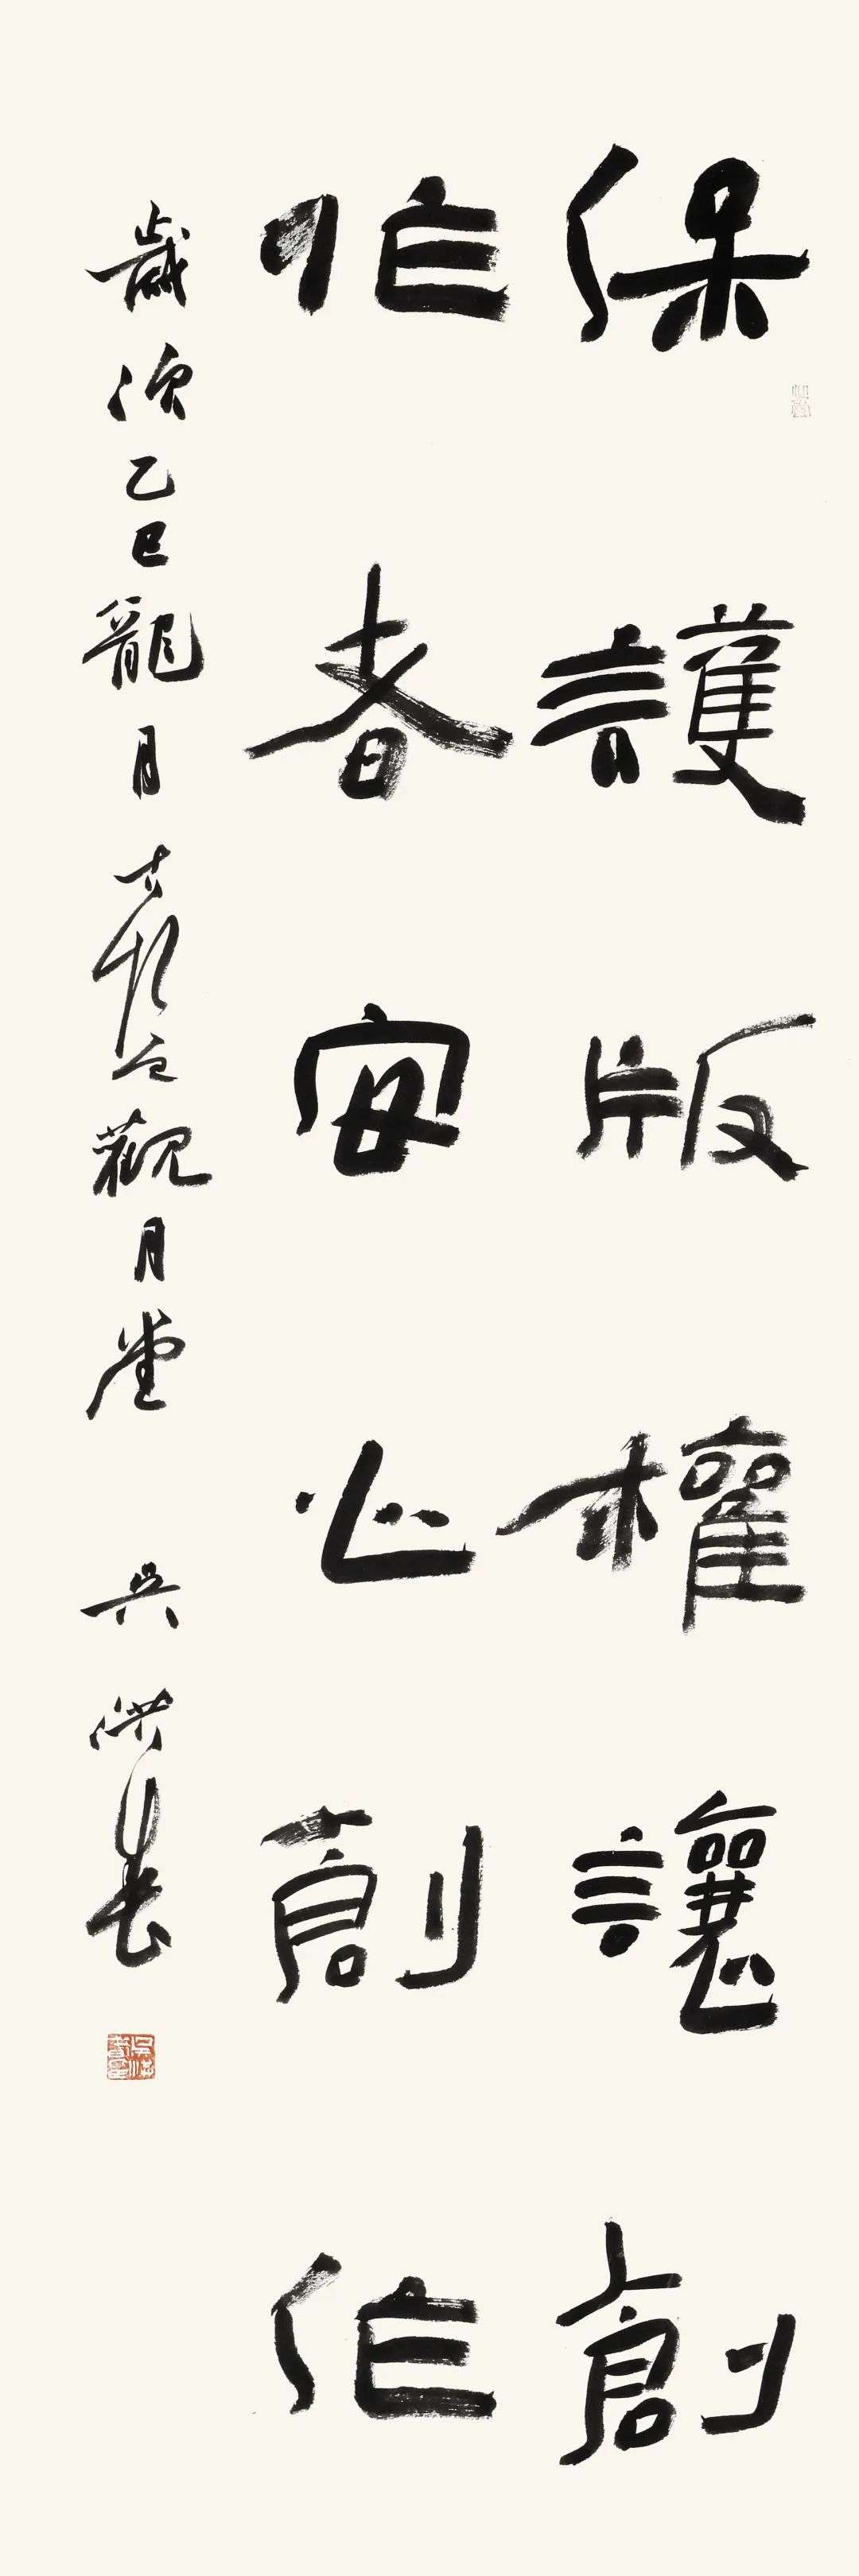 保護版權讓創
作者安心創作
歲次乙巳龍月於觀月堂吳洪春